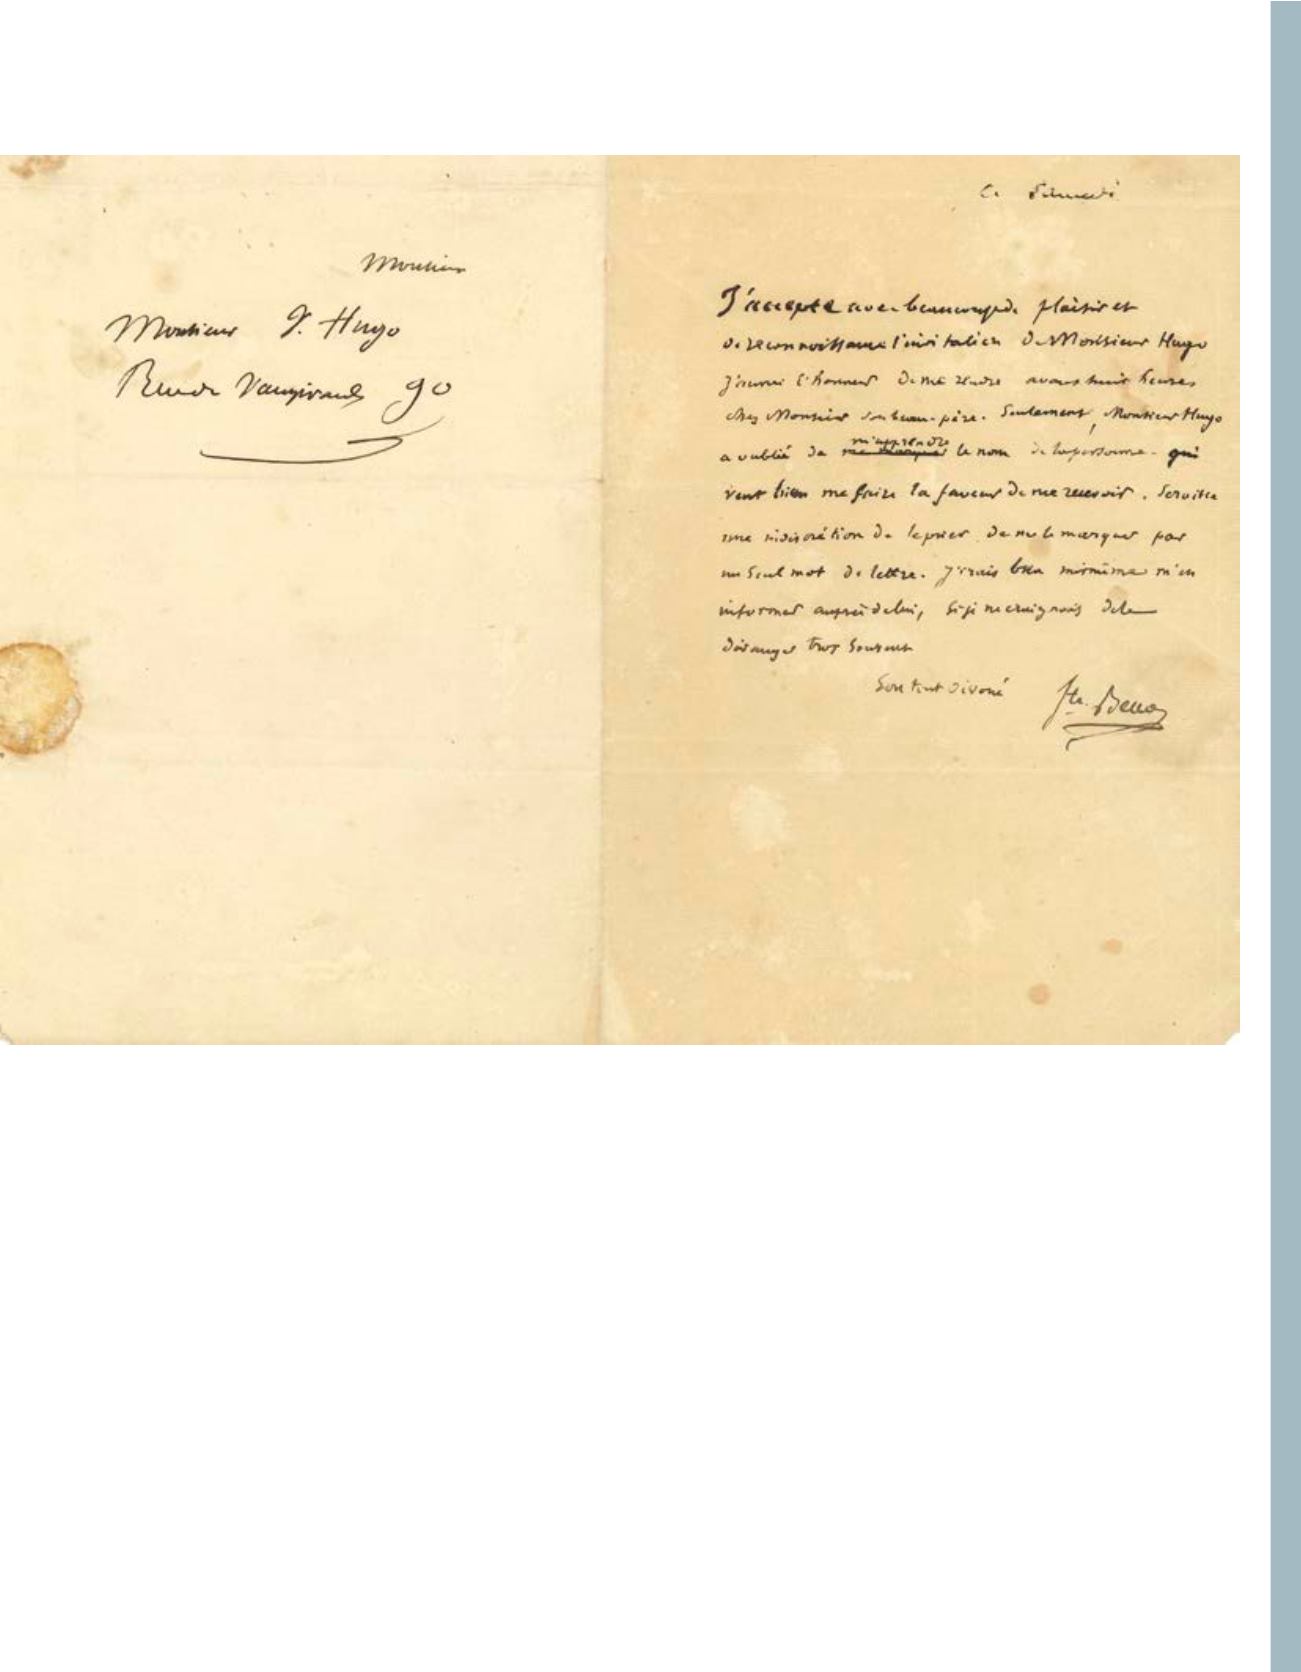 Monsieur
Monsieur V. Hugo
Rue de Vaugirard 90
Ce Samedi
J'accepte avec beaucoup de plaisir et
de reconnoissance l'invitation de Monsieur Hugo
J'aurai l'honneur de me rendre avant huit heures
chez Monsieur son beau-père. Seulement, Monsieur Hugo
a oublié de m'apprendre le nom de la personne qui
veut bien me faire la faveur de me recevoir. Seroit-ce
une indiscrétion de le prier de me le marquer par
un seul mot de lettre. J'irais bien moi-même m'en
informer auprès de lui, si je ne craignois de le
déranger trop souvent
Son tout dévoué
Ste. Beuve